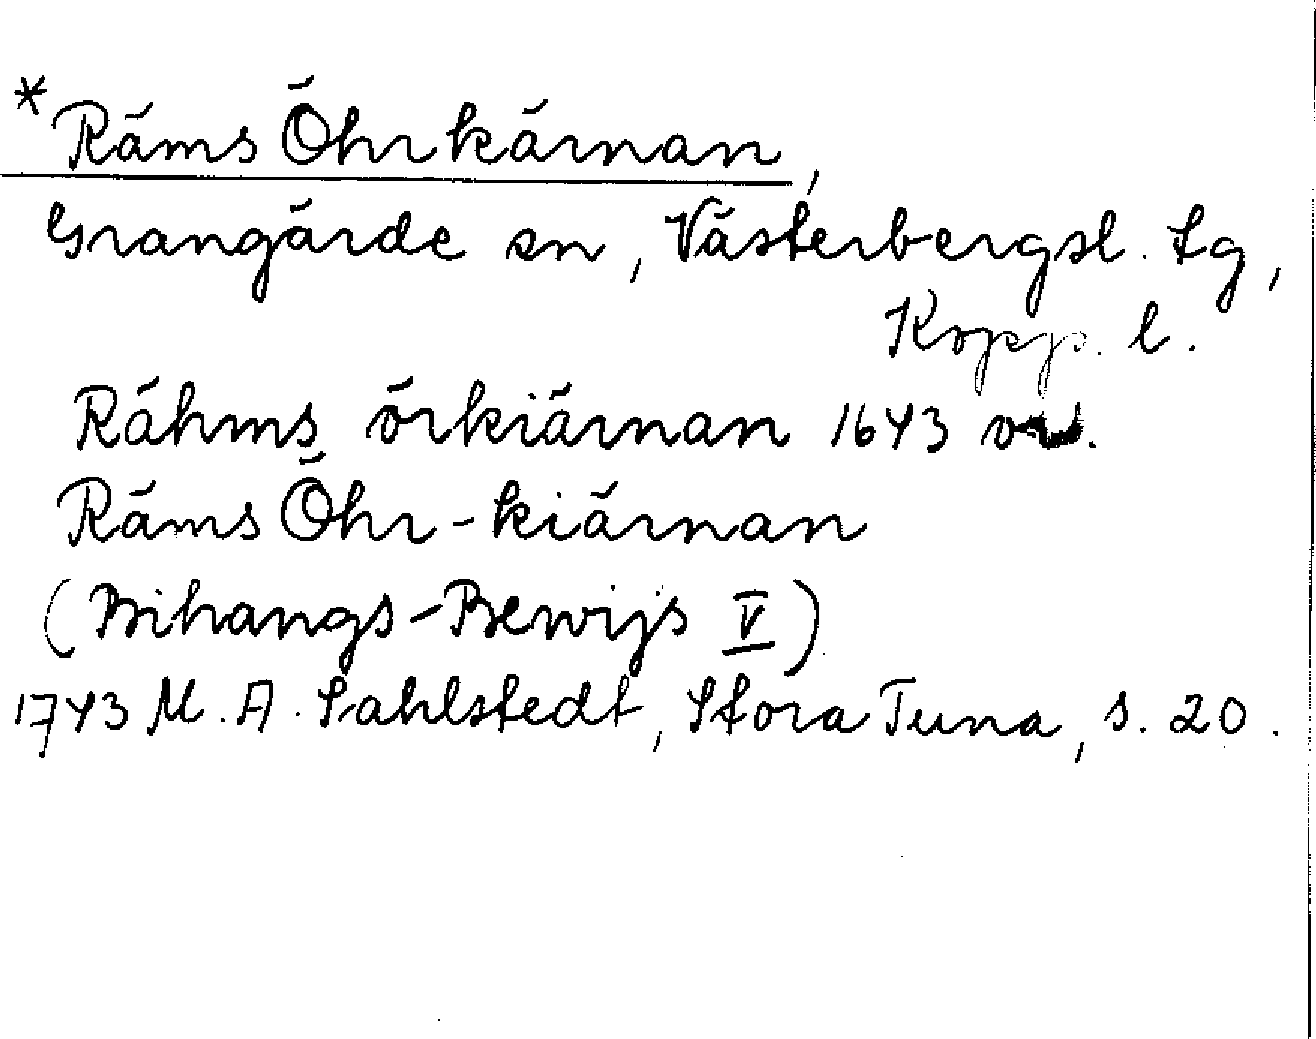 *Räms Öhrkärnan,
Grangärde sn, Västerbergsl. fg,
Kopp. l.
Rähms örkiärnan 1643
Räms Öhr-kiärnan
(Bihangs-Bewijs V)
1743 M. A. Sahlstedt, Stora Tuna, s. 20.